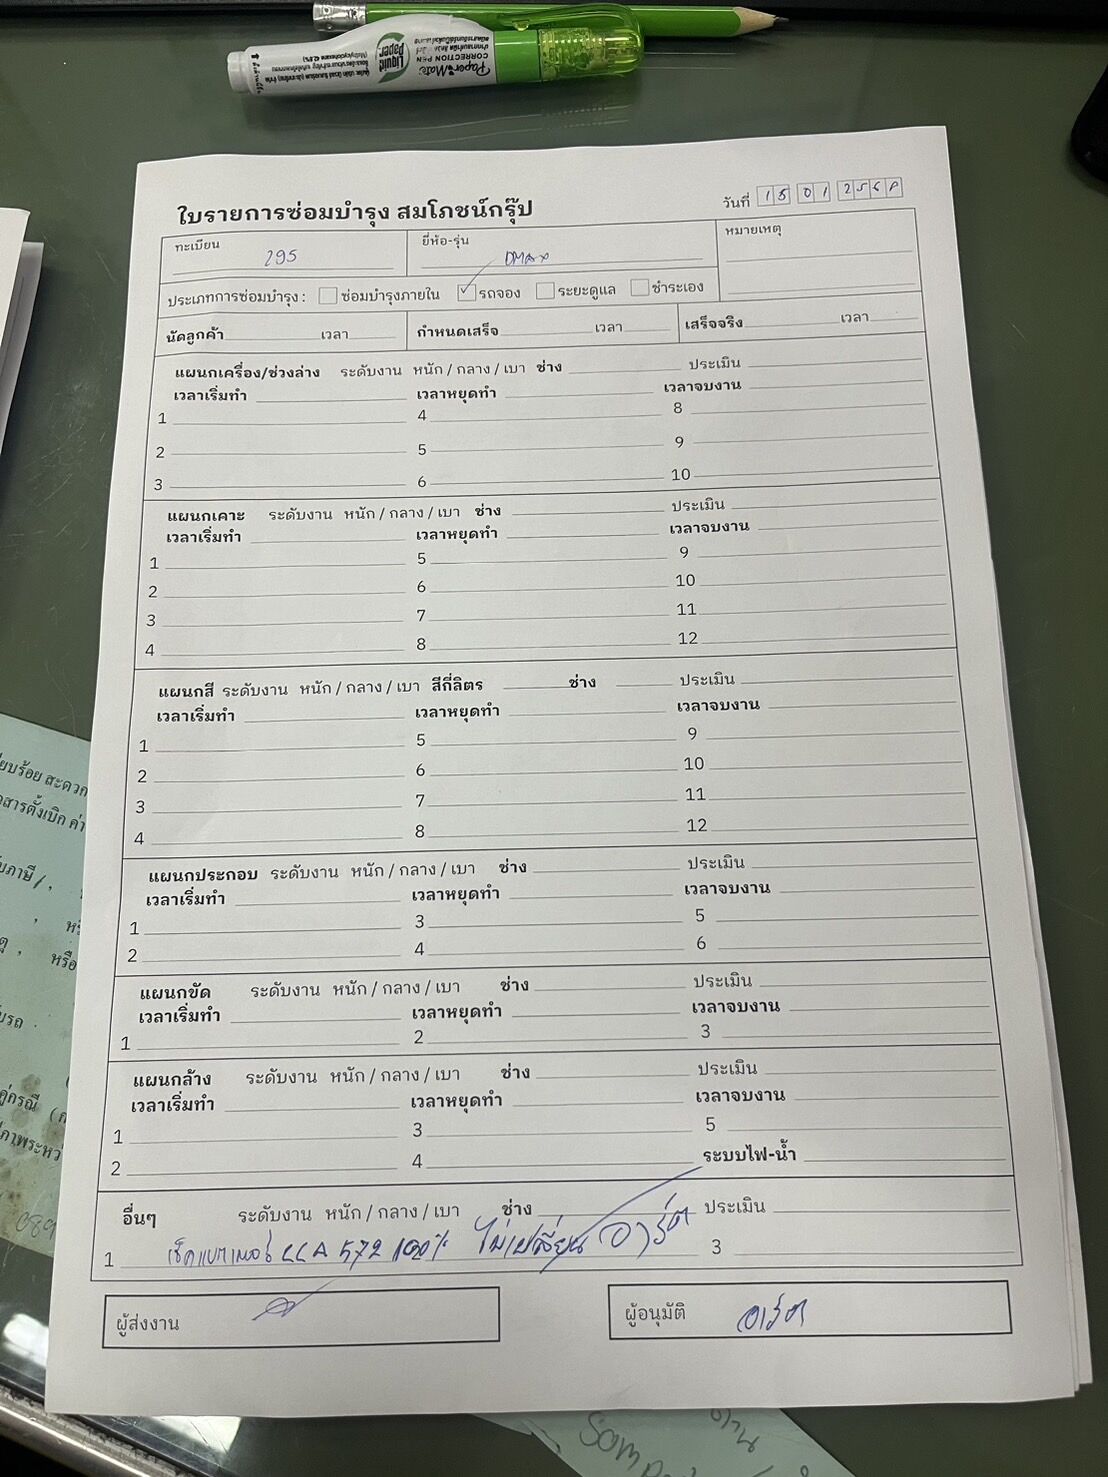 Paper Mate
CORRECTION PEN
Liquid Paper
ใบรายการซ่อมบำรุง สมโภชน์กรุ๊ป
วันที่ 15 01 256
ทะเบียน 295 ยี่ห้อ-รุ่น DMAX หมายเหตุ
ประเภทการซ่อมบำรุง : ซ่อมบำรุงภายใน ✓ รถจอง ระยะดูแล ชำระเอง
นัดลูกค้า เวลา กำหนดเสร็จ เวลา เสร็จจริง เวลา
แผนกเครื่อง/ช่วงล่าง ระดับงาน หนัก / กลาง / เบา ช่าง ประเมิน
เวลาเริ่มทำ เวลาหยุดทำ เวลาจบงาน
1 4 8
2 5 9
3 6 10
แผนกเคาะ ระดับงาน หนัก / กลาง / เบา ช่าง ประเมิน
เวลาเริ่มทำ เวลาหยุดทำ เวลาจบงาน
1 5 9
2 6 10
3 7 11
4 8 12
แผนกสี ระดับงาน หนัก / กลาง / เบา สีกี่ลิตร ช่าง ประเมิน
เวลาเริ่มทำ เวลาหยุดทำ เวลาจบงาน
1 5 9
2 6 10
3 7 11
4 8 12
แผนกประกอบ ระดับงาน หนัก / กลาง / เบา ช่าง ประเมิน
เวลาเริ่มทำ เวลาหยุดทำ เวลาจบงาน
1 3 5
2 4 6
แผนกขัด ระดับงาน หนัก / กลาง / เบา ช่าง ประเมิน
เวลาเริ่มทำ เวลาหยุดทำ เวลาจบงาน
1 2 3
แผนกล้าง ระดับงาน หนัก / กลาง / เบา ช่าง ประเมิน
เวลาเริ่มทำ เวลาหยุดทำ เวลาจบงาน
1 3 5
2 4 ระบบไฟ-น้ำ
อื่นๆ ระดับงาน หนัก / กลาง / เบา ช่าง ประเมิน
1 เช็คแบตเตอรี่ CCA 572 100% ไม่เปลี่ยน อาร์ต 3
ผู้ส่งงาน ผู้อนุมัติ อาร์ต